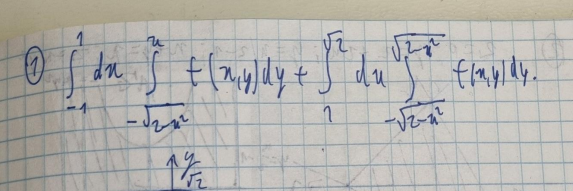 ① ∫_{-1}^{1} dx ∫_{-√(2-x²)}^{x} f(x,y)dy + ∫_{1}^{√2} dx ∫_{-√(2-x²)}^{√(2-x²)} f(x,y)dy.
y
√2